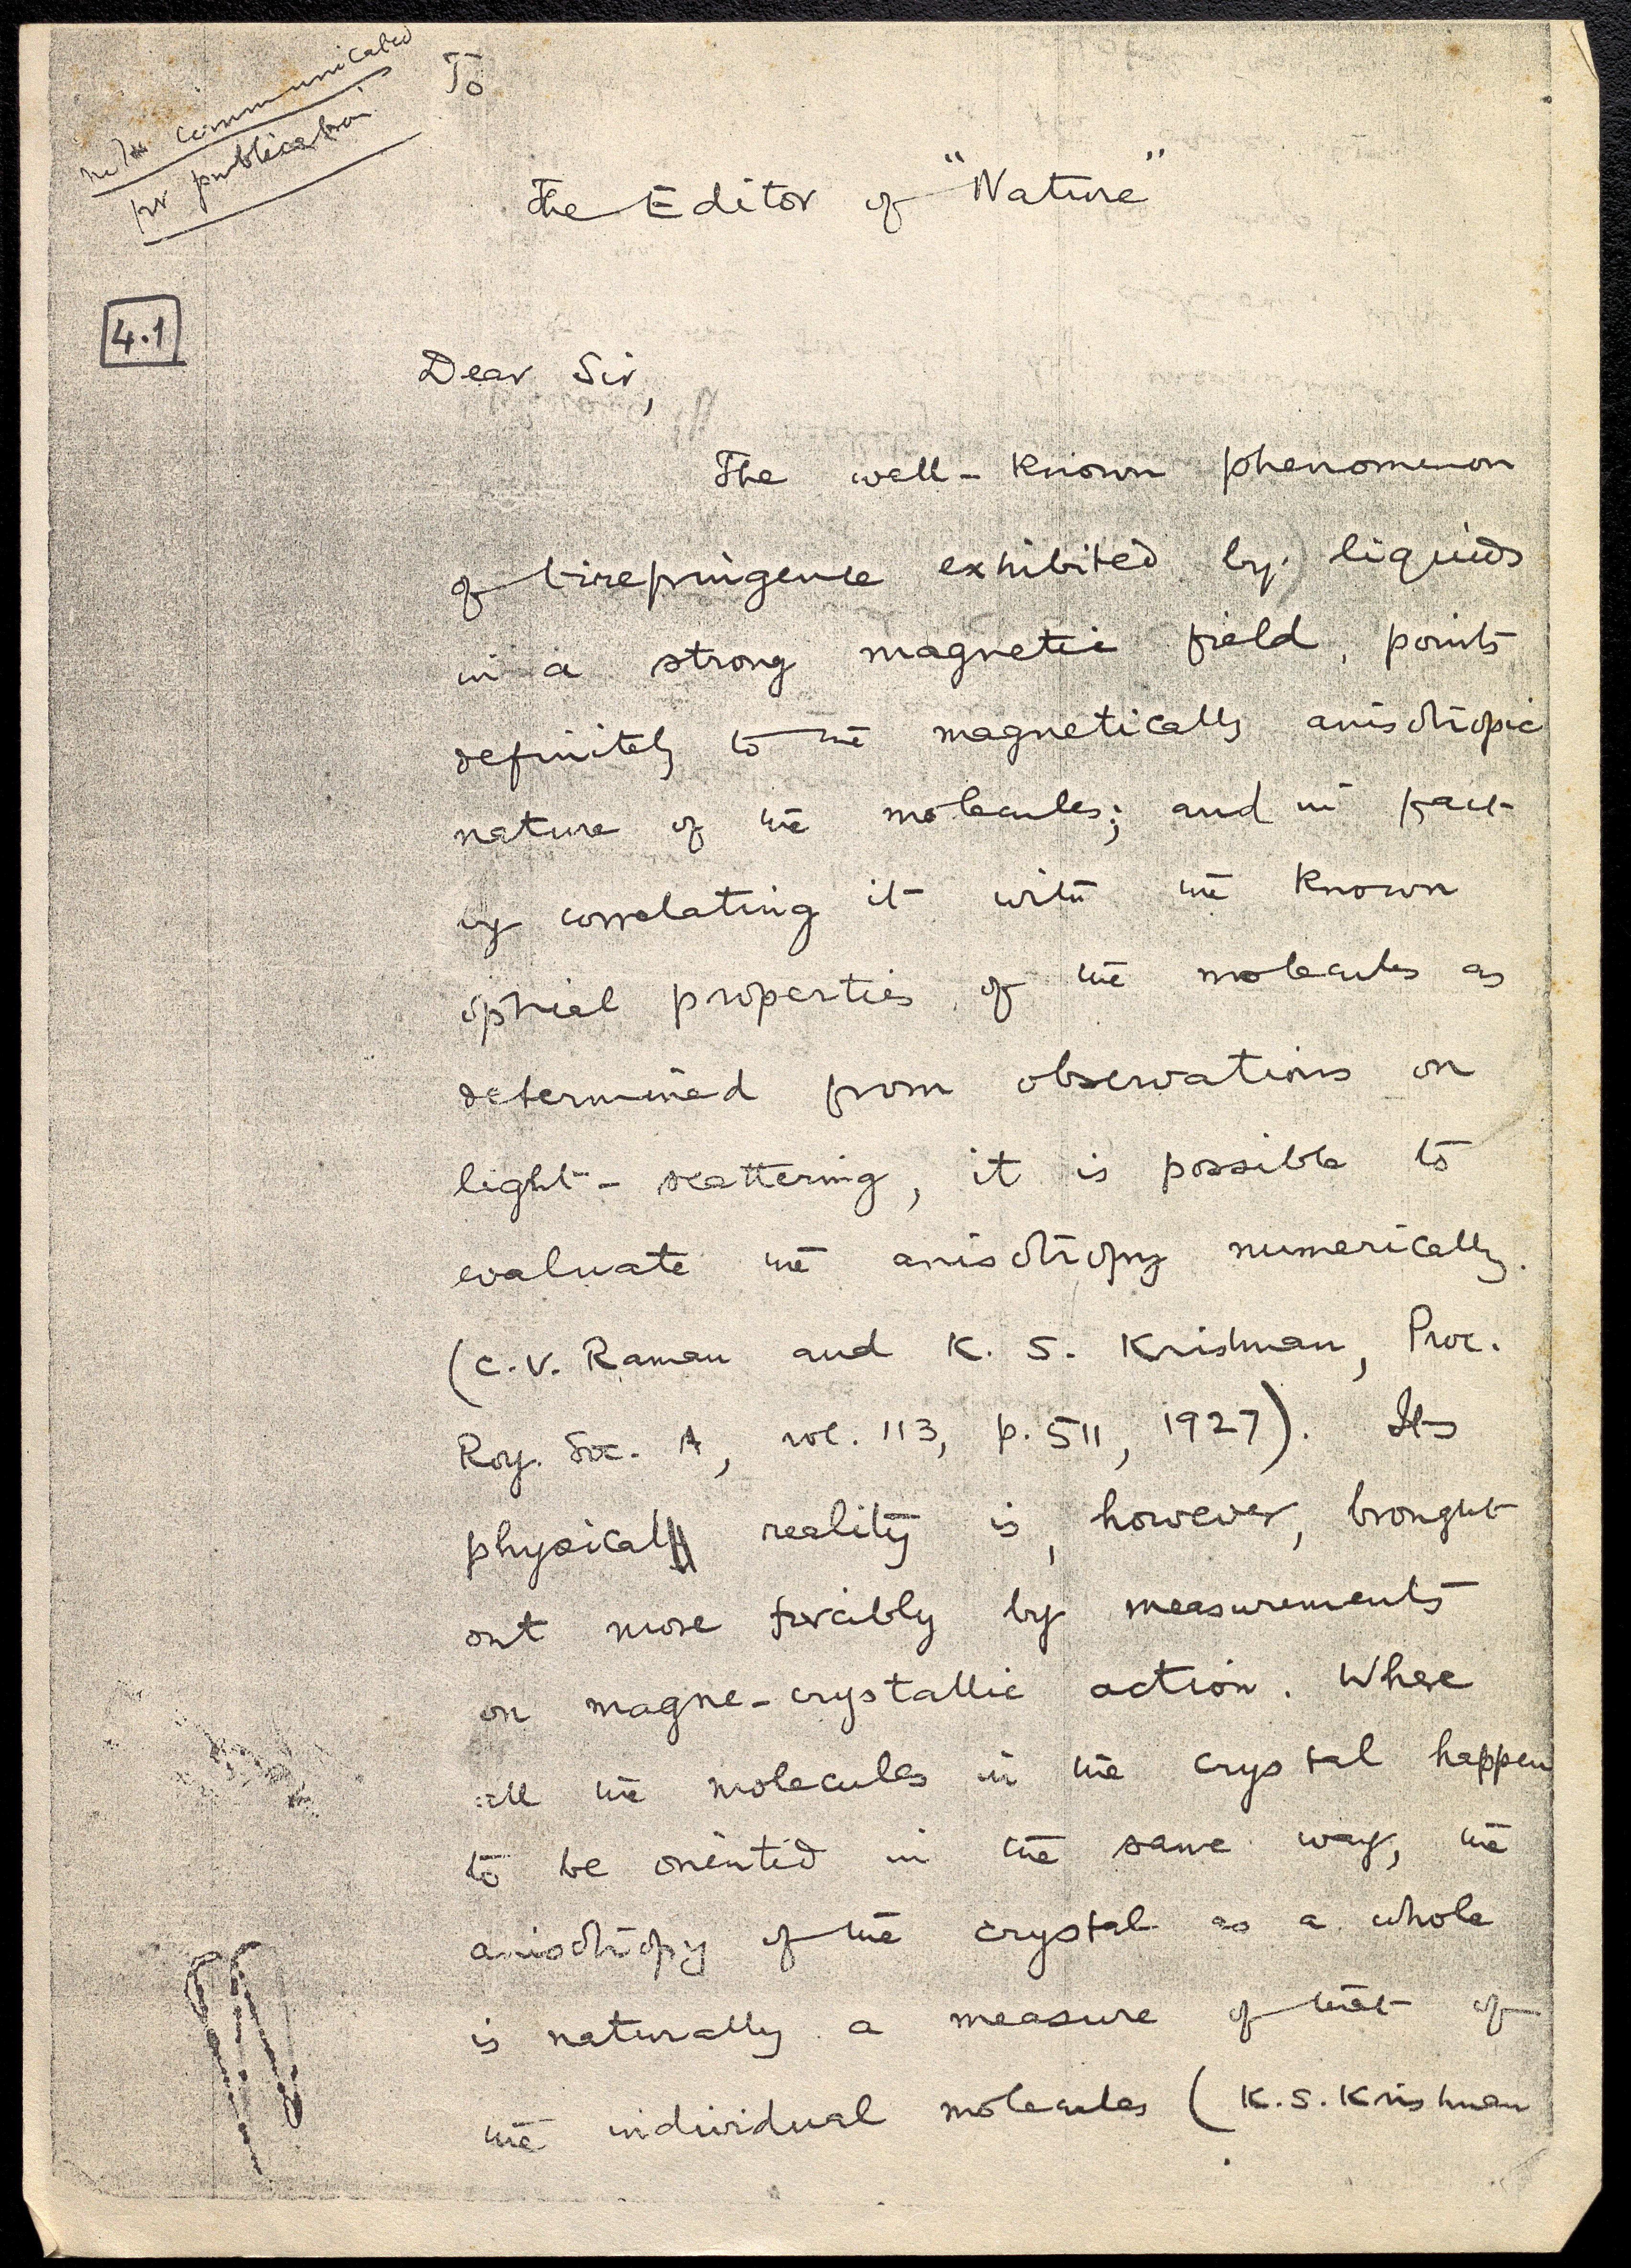 not communicated
for publication
To
The Editor of "Nature"
4.1
Dear Sir,
The well-known phenomenon
of birefringence exhibited by liquids
in a strong magnetic field, points
definitely to the magnetically anisotropic
nature of the molecules; and in fact
by correlating it with the known
optical properties of the molecules as
determined from observations on
light-scattering, it is possible to
evaluate the anisotropy numerically.
(C.V. Raman and K. S. Krishnan, Proc.
Roy. Soc. A, vol. 113, p. 511, 1927). Its
physical reality is, however, brought
out more forcibly by measurements
on magne-crystallic action. Where
all the molecules in the crystal happen
to be oriented in the same way, the
anisotropy of the crystal as a whole
is naturally a measure of that of
the individual molecules (K.S. Krishnan